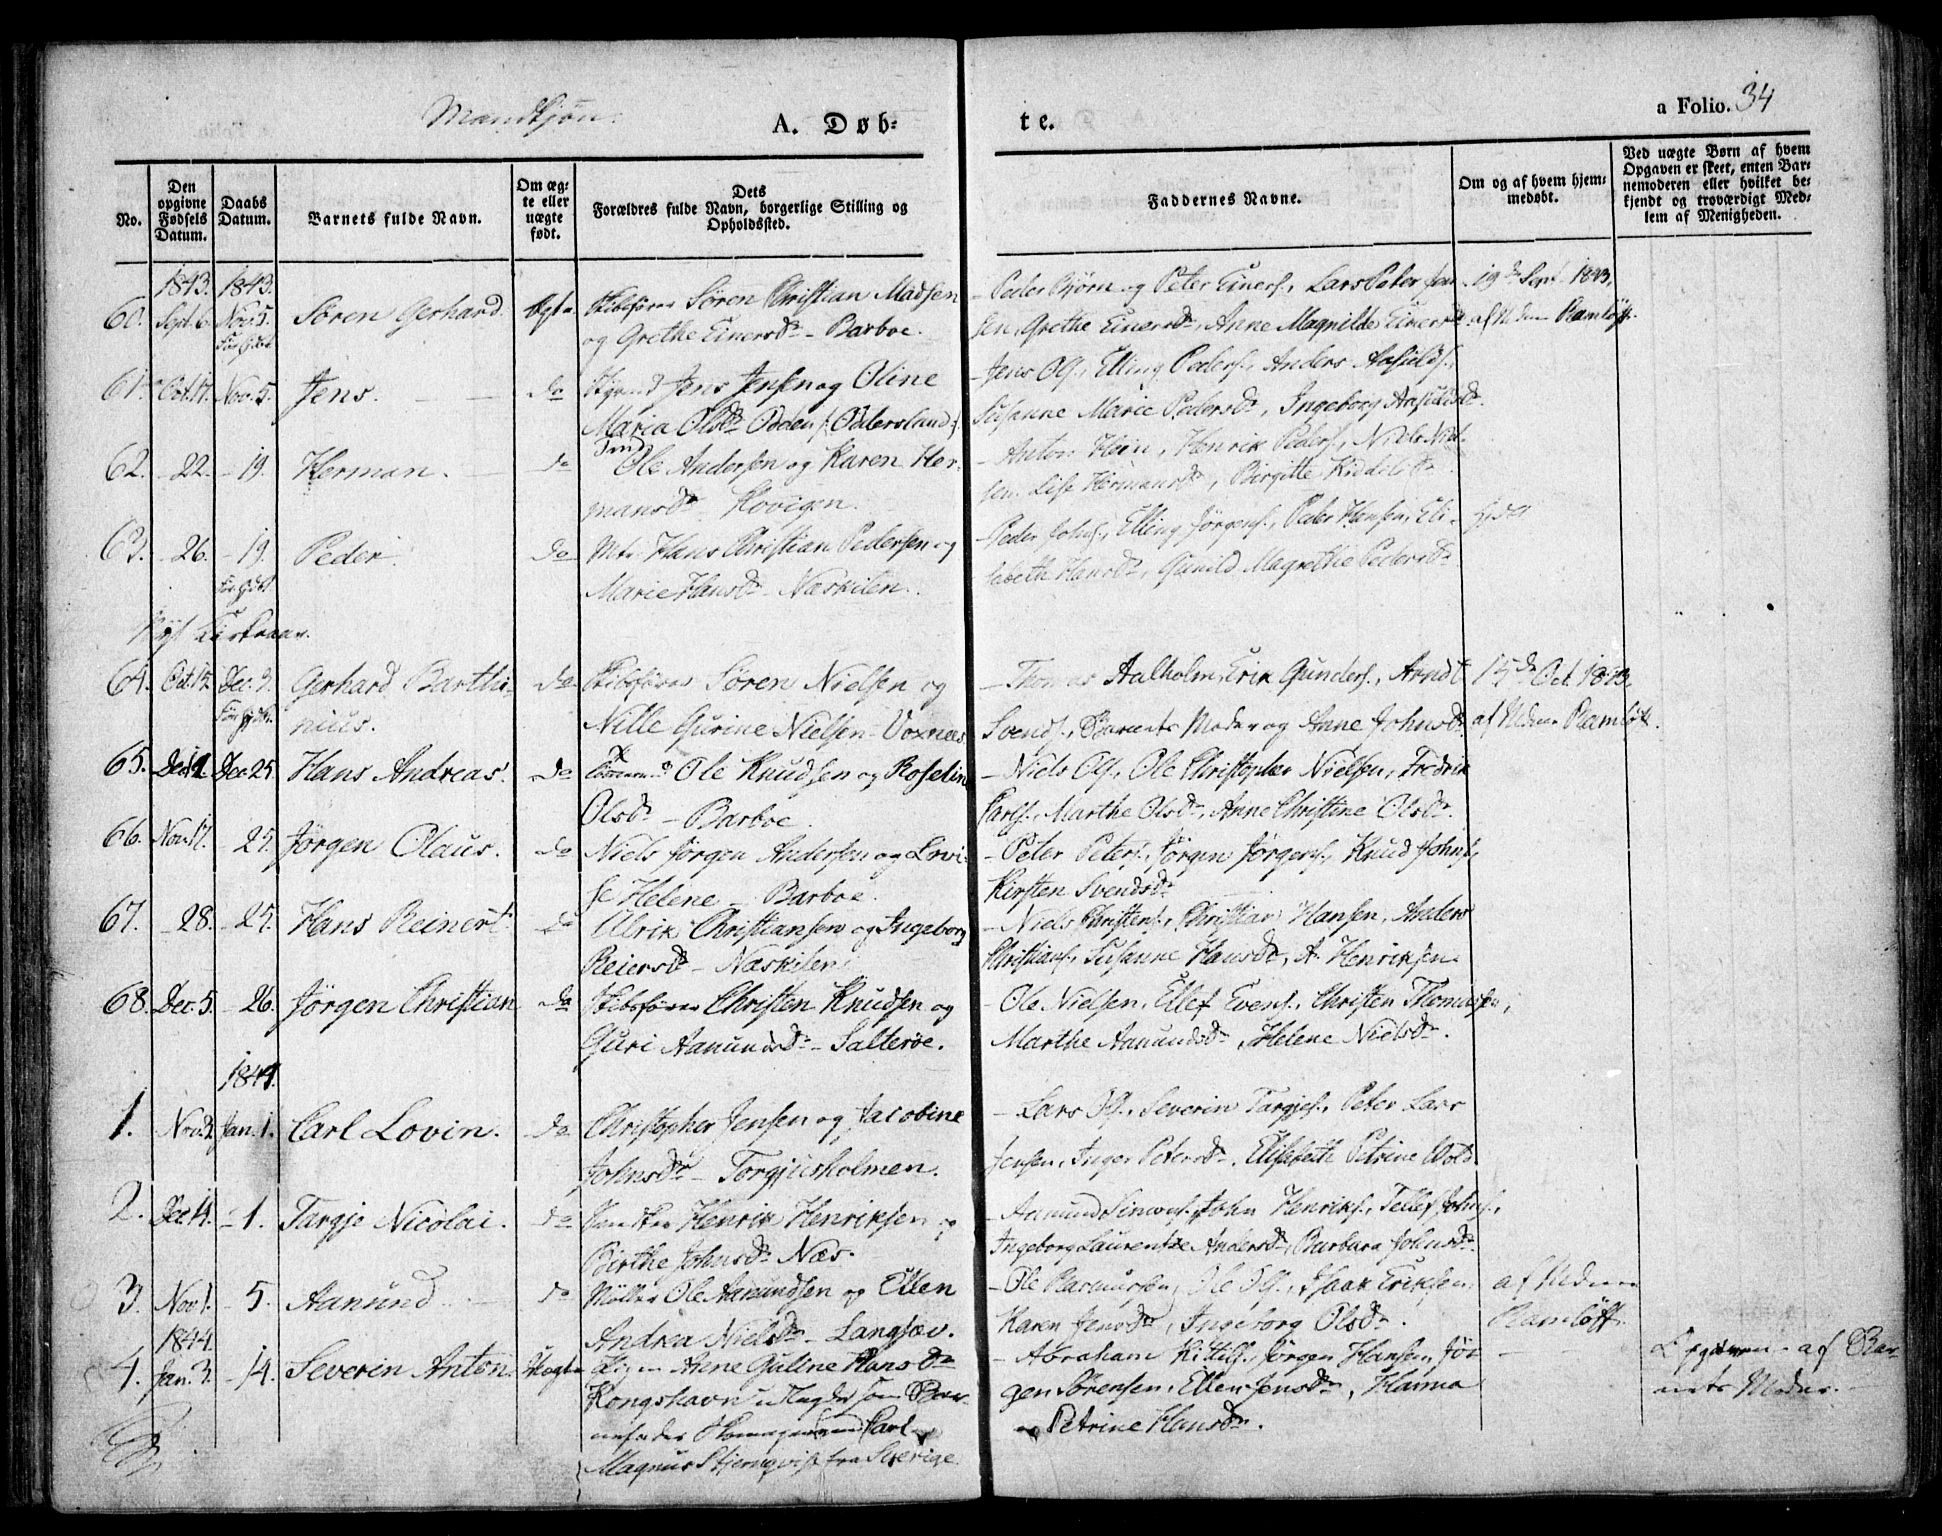 Mandkjøn.
A. Døb-
te.
a Folio. 34
No.
Den opgivne Fødsels Datum.
Daabs Datum.
Barnets fulde Navn.
Om ægte eller uægte født.
Dets Forældres fulde Navn, borgerlige Stilling og Opholdssted.
Faddernes Navne.
Om og af hvem hjemmedøbt.
Ved uægte Børn af hvem Opgaven er skeet, enten Barnemoderen eller hvilket bekjendt og troværdigt Medlem af Menigheden.
1843. 1843.
60. Sept. 6. Nov. 5. Søren Gerhard. Ægte Skibsfører Søren Christian Madsen
og Grethe Einersdr - Barboe.
- Peder Bjørn og Peter Einers., Lars Peter Jen-
sen, Grethe Einersdr, Anne Magnilde Einersdr
19de Sept. 1843.
af Ramløff.
61. Oct. 17. Nov. 5. Jens. do Jens Jensen og Oline
Maria Olsdr Odden (Oddersland).
- Jens Ols., Elling Peders., Anders
Susanne Marie Pedersdr, Ingeborg
62. - 22. - 19. Herman. do Ole Andersen og Karen Her-
mansdr
- Anton Hein, Henrik Peders., Niels Niel-
sen, Lise Hermansdr, Birgitte
63. - 26. - 19. Peder. do Hans Christian Pedersen og
Marie Hansdr - Næskilen.
- Peder Johns., Elling Jørgens., Peder Hansen, Eli-
sebeth Hansdr, Gunild Magrethe Pedersdr
Nyt Kirkeaar.
64. Oct. Dec. 3. Gerhard Barthi-
nius. do Skibsfører Søren Nielsen og
Nille Gurine Nielsen - Voxnæs.
- Thomas Aalholm, Erik Gunders., Arndt
Svends., Barnets Moder og Anne Johnsdr
15de Oct. 1843.
af Ramløff.
65. Dec. 25. Hans Andreas. do Ole Knudsen og Roseline
Olsdr - Barboe.
- Niels Ols., Ole Christopher Nielsen, Fredrik
Carls., Marthe Olsdr, Anne Christine Olsdr.
66. Nov. 17. 25. Jørgen Olaus. do Niels Jørgen Andersen og Lovi-
se Helene - Barboe.
- Peter Peters., Jørgen Jørgens., Knud Johns.,
Kirsten Svendsdr
67. - 28. - 25. Hans Reinert. do Ulrik Christiansen og Ingeborg
Reiersdr - Næskilen.
- Niels Christens., Christian Hansen, Anders
Christians., Susanne Hansdr, A. Henriksen.
68. Dec. 5. - 26. Jørgen Christian do Skibsfører Christen Knudsen og
Guri Aanundsdr - Salterøe.
- Ole Nielsen, Ellef Evens., Christen Thomassen,
Marthe Aanundsdr, Helene Nielsdr.
1844.
1. Nov. 2. Jan. 1. Carl Lovin. do Christopher Jensen og Jacobine
Johnsdr - Torgjusholmen.
- Lars Ols., Severin Targjes., Peter Lars
Jensen, Inger Petersdr, Elisebeth Petrine Wold.
2. Dec. 14. - 1. Targje Nicolai. do Henrik Henriksen og
Birthe Johnsdr Næs.
- Aanund Simons., John Henriks., Tellef Johns.,
Ingeborg Laurentze Andersdr, Barbara Johnsdr.
3. Nov. 1. - 5. Aanund do Møller Ole Aanundsen og Ellen
Andrea Nielsdr - Langsæv.
- Ole Rasmussen, Ole Ols., Isaak Eriksen,
Karen Jensdr, Ingeborg Olsdr.
af
Ramløff.
1844.
4. Jan. 3. - 14. Severin Anton. Uægte Anne Guline Hansdr
Kongshavn Bar-
nefader Carl
Magnus Stjernqvist fra Sverige.
- Abraham Kittils., Jørgen Hansen, Jør-
gen Sørensen, Ellen Jensdr, Hanna
Petrine Hansdr.
- af Bar-
nets Moder.